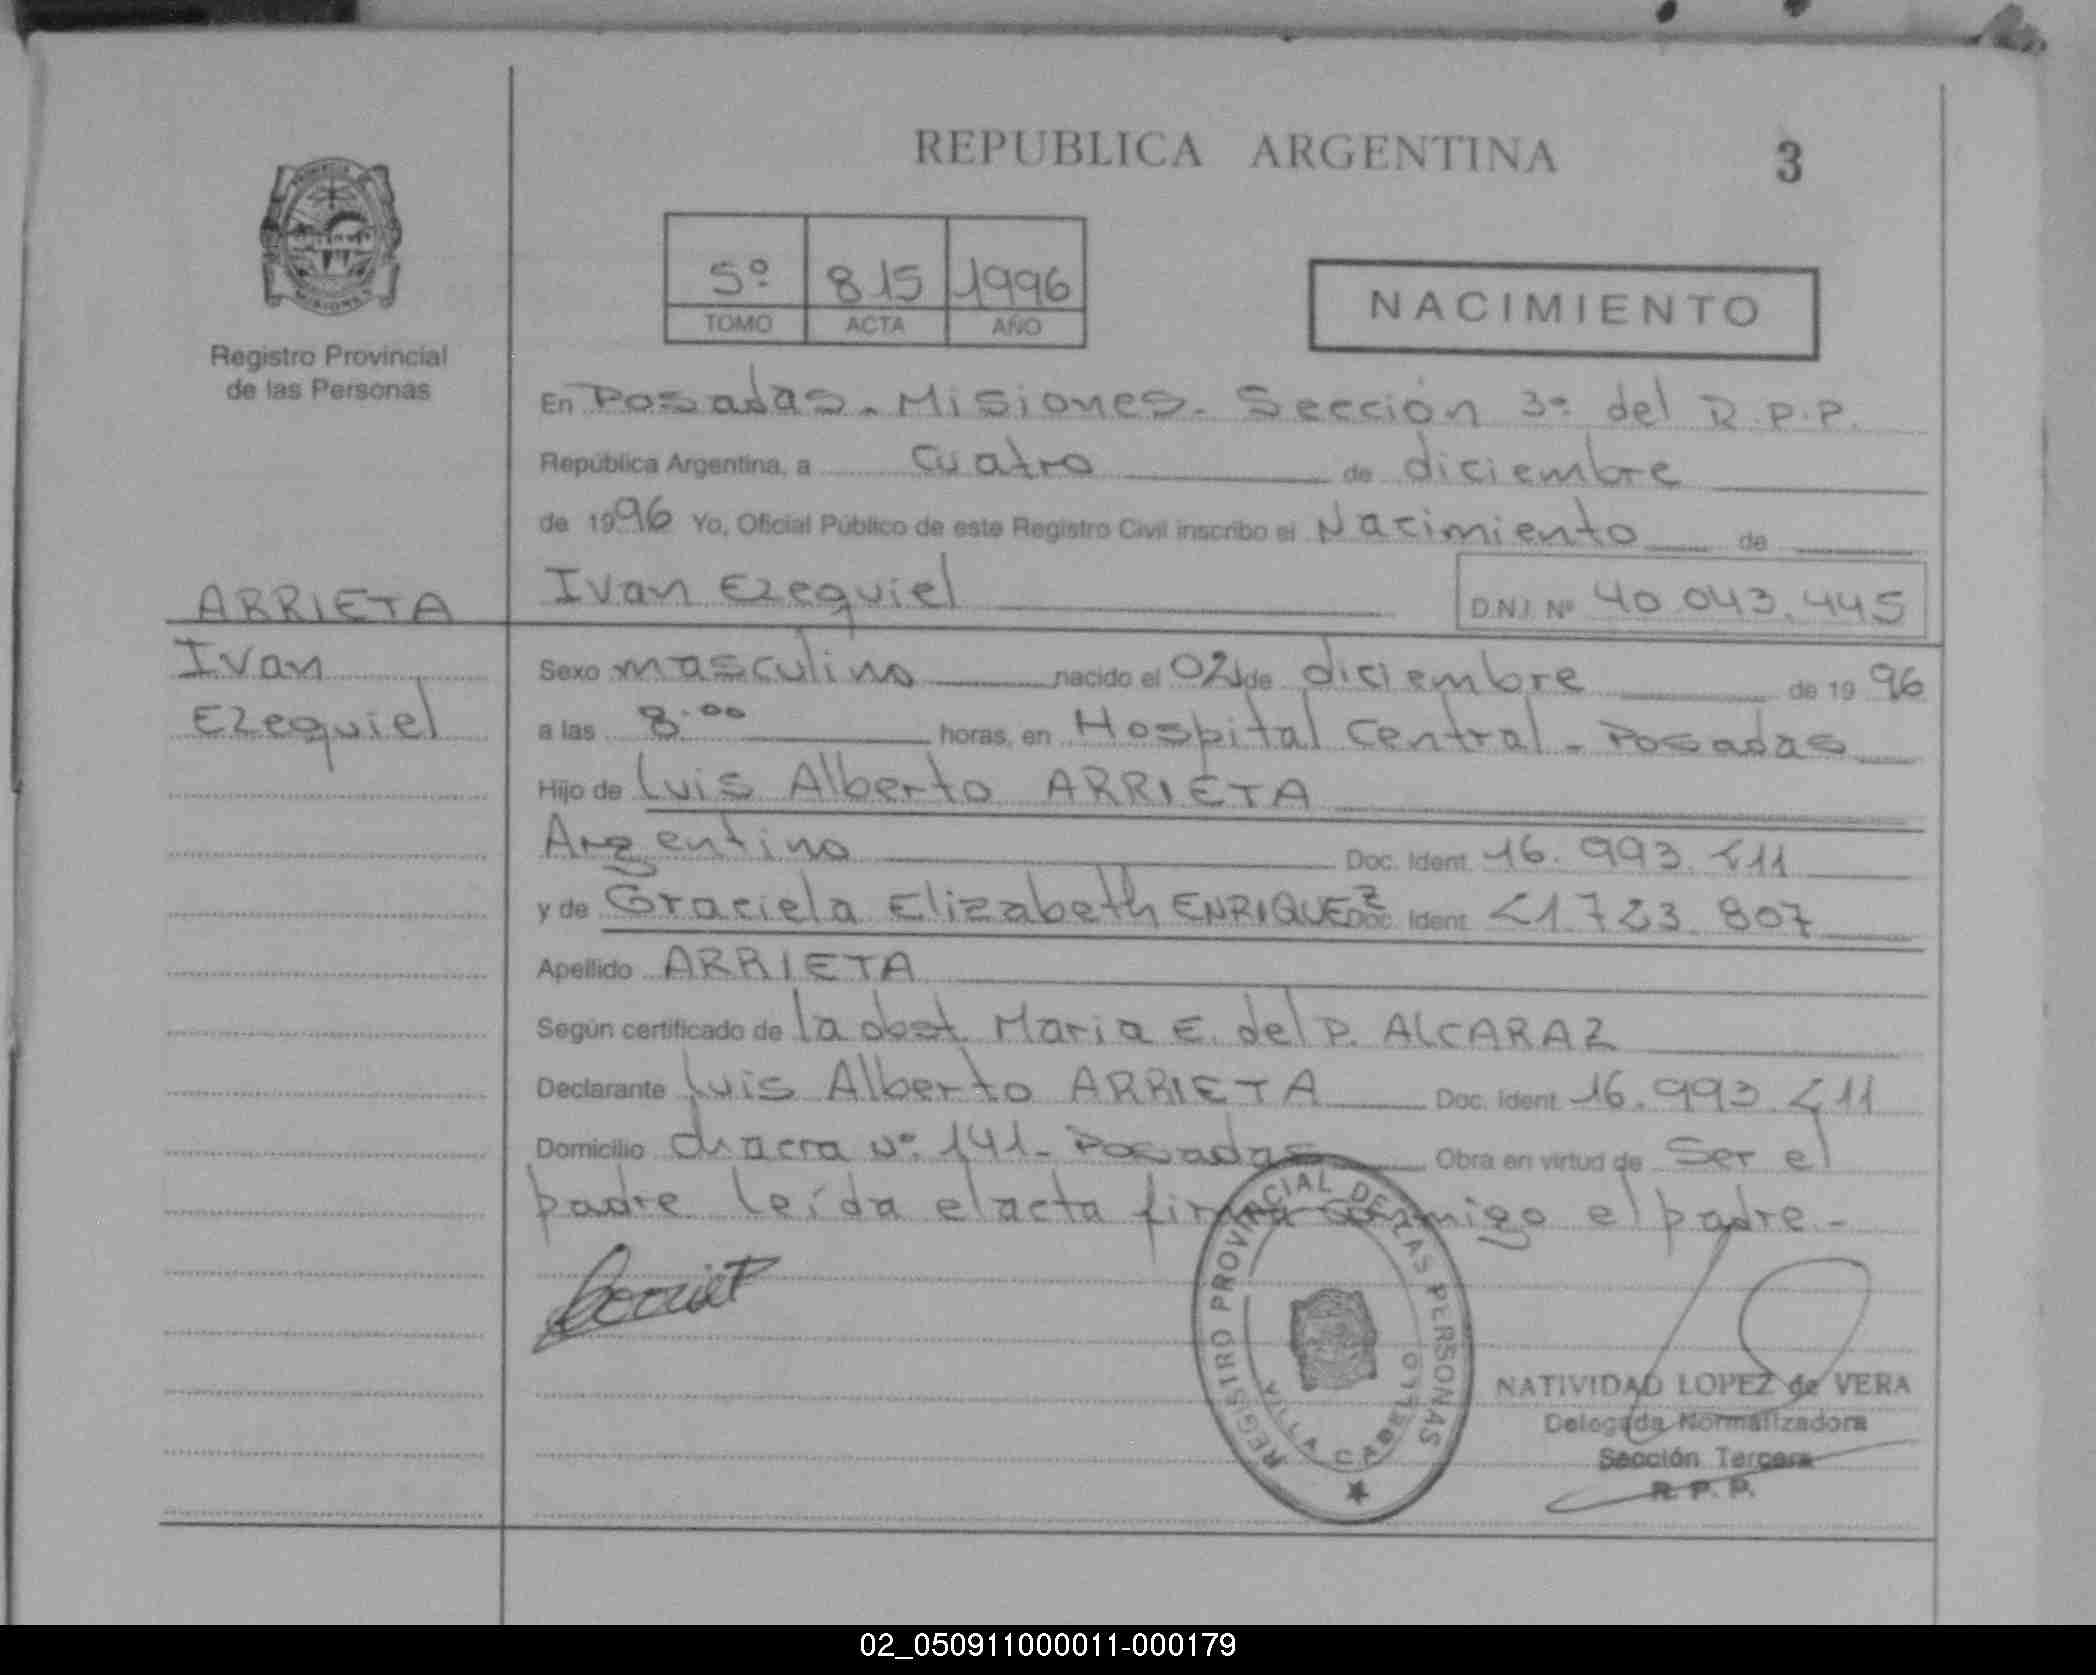 REPUBLICA ARGENTINA
3
5º 815 1996
TOMO ACTA AÑO
NACIMIENTO
Registro Provincial
de las Personas
En Posadas. Misiones. Sección 3ª del R.P.P.
República Argentina, a cuatro de diciembre
de 1996 Yo, Oficial Público de este Registro Civil inscribo el Nacimiento de
ARRIETA
Ivan Ezequiel
D.N.I. Nº 40.043.445
Ivan
Ezequiel
Sexo masculino nacido el 02 de diciembre de 1996
a las 8.00 horas, en Hospital Central - Posadas
Hijo de Luis Alberto ARRIETA
Argentino Doc. Ident. 16.993.211
y de Graciela Elizabeth ENRIQUEZ Doc. Ident. 21.723.807
Apellido ARRIETA
Según certificado de la obst. Maria E. del P. ALCARAZ
Declarante Luis Alberto ARRIETA Doc. Ident. 16.993.211
Domicilio chacra Nº 141 - Posadas Obra en virtud de Ser el
padre leída el acta firma conmigo el padre.-
REGISTRO PROVINCIAL DE LAS PERSONAS
VILLA CABELLO
NATIVIDAD LOPEZ de VERA
Delegada Normalizadora
Sección Tercera
R. P. P.
02_050911000011-000179